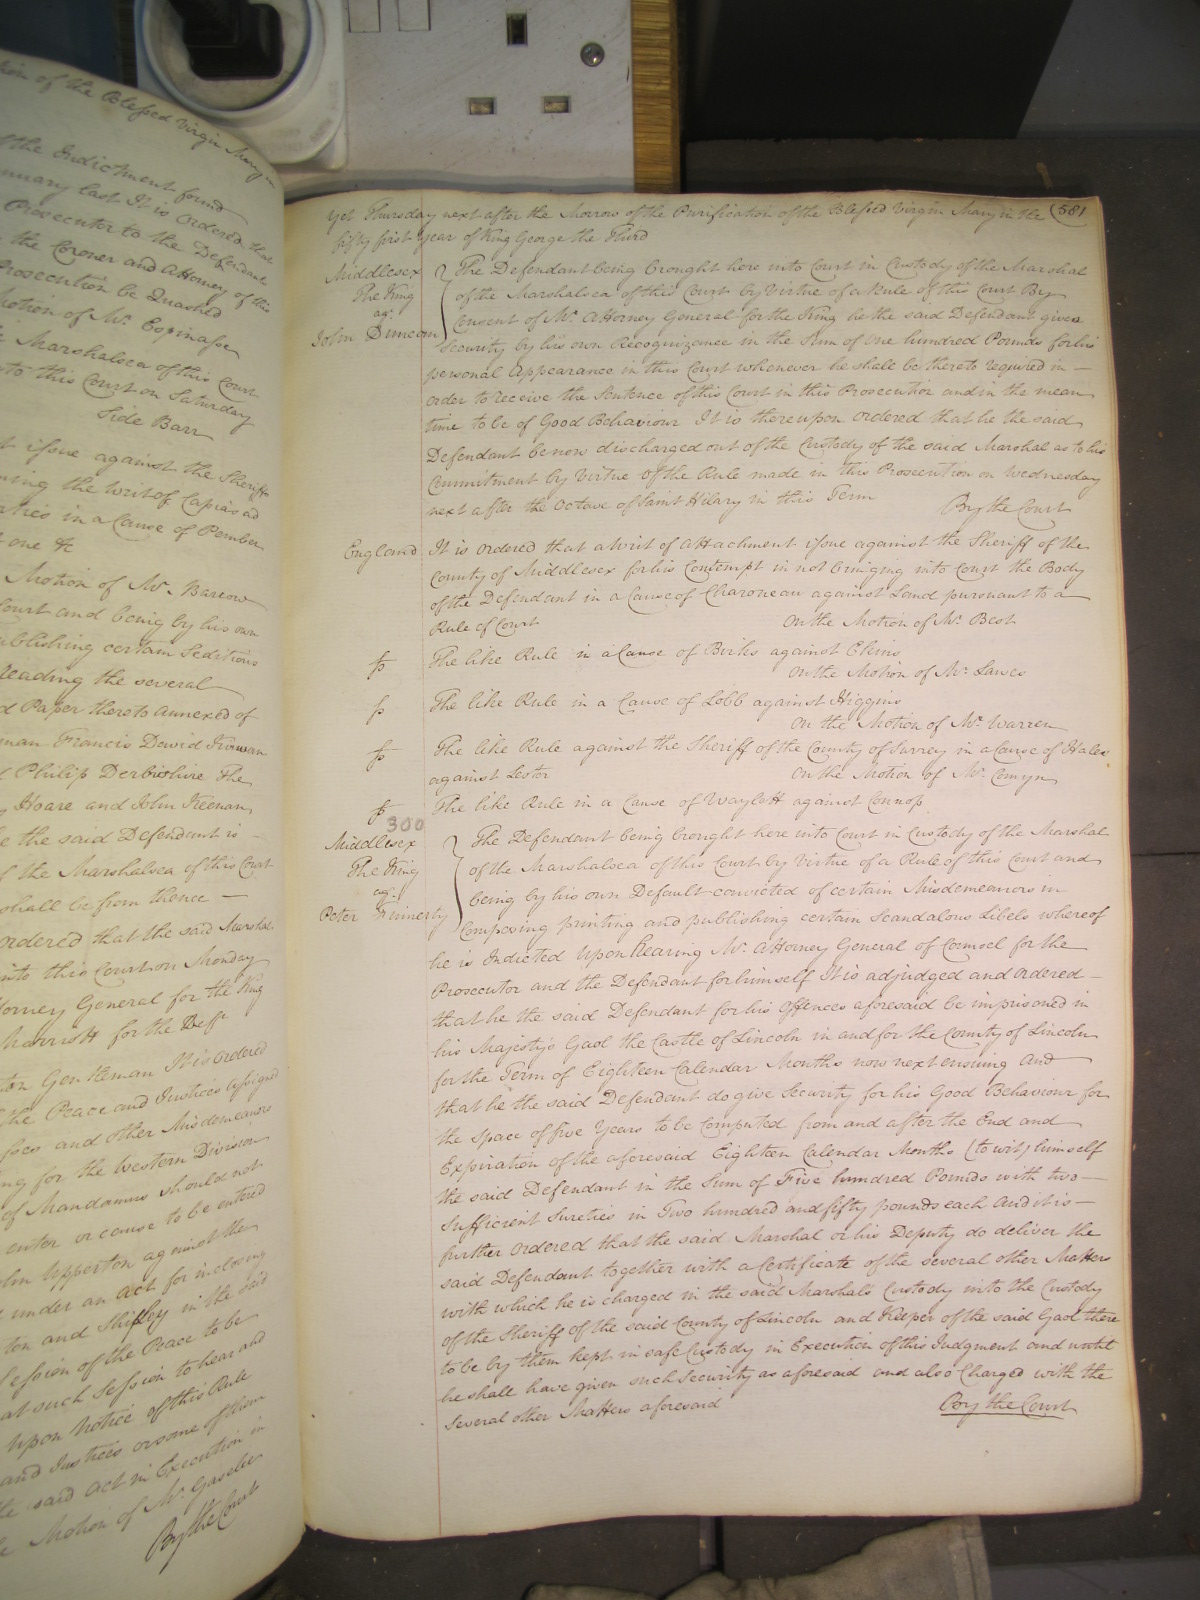 tion of the Blessed Virgin Mary in
f the Indictment found
nuary last It is Ordered that
Prosecutor to the Defendant
the Coroner and Attorney of this
Prosecution be Quashed
Motion of Mr. Espinasse
Marshalsea of this Court
to this Court on Saturday
Side Barr
t issue against the Sheriff
ning the Writ of Capias ad
in a Cause of Pember
one &c
Motion of Mr. Barrow
Court and being by his own
ublishing certain Seditious
reading the several
d Paper thereto annexed of
man Francis David Kirwan
Philip Derbishire The
Hoare and John Keenan
e the said Defendant is
f the Marshalsea of this Court
shall be from thence
ordered that the said Marshal
into this Court on Monday
torney General for the King
Marriott for the Defft
ton Gentleman It is Ordered
the Peace and Justices assigned
sses and other Misdemeanors
ng for the Western Division
of Mandamus should not
enter or cause to be entered
ohn Upperton against the
under an act for inclosing
ton and Shipley in the said
Session of the Peace to be
at such Session to hear and
upon Notice of this Rule
and Justices or some of them
the said act in Execution in
Motion of Mr. Gaselee
By the Court
Yet Thursday next after the Morrow of the Purification of the Blessed Virgin Mary in the (581
fifty first year of King George the Third
Middlesex
The King
agt.
John Duncom
The Defendant being brought here into Court in Custody of the Marshal
of the Marshalsea of this Court by Virtue of a Rule of this Court By
Consent of Mr. Attorney General for the King he the said Defendant gives
Security by his own Recognizance in the Sum of one hundred Pounds for his
personal appearance in this Court whenever he shall be thereto required in
order to receive the Sentence of this Court in this Prosecution and in the mean
time to be of Good Behaviour It is thereupon ordered that he the said
Defendant be now discharged out of the Custody of the said Marshal as to his
Commitment by Virtue of the Rule made in this Prosecution on Wednesday
next after the Octave of Saint Hilary in this Term
By the Court
England It is ordered that a Writ of Attachment issue against the Sheriff of the
County of Middlesex for his Contempt in not bringing into Court the Body
of the Defendant in a Cause of Charoneau against Land pursuant to a
Rule of Court On the Motion of Mr. Best
The like Rule in a Cause of Birks against Ekins
On the Motion of Mr. Lawes
The like Rule in a Cause of Lobb against Higgins
On the Motion of Mr. Warren
The like Rule against the Sheriff of the County of Surrey in a Cause of Hales
against Lester On the Motion of Mr. Comyn
The like Rule in a Cause of Waylett against Connop
300
Middlesex
The King
agt.
Peter Finnerty
The Defendant being brought here into Court in Custody of the Marshal
of the Marshalsea of this Court by Virtue of a Rule of this Court and
being by his own Default convicted of certain Misdemeanors in
Composing printing and publishing certain Scandalous Libels whereof
he is Indicted Upon hearing Mr. Attorney General of Counsel for the
Prosecutor and the Defendant for himself It is adjudged and ordered
that he the said Defendant for his Offences aforesaid be imprisoned in
his Majesty's Gaol the Castle of Lincoln in and for the County of Lincoln
for the Term of Eighteen Calendar Months now next ensuing and
that he the said Defendant do give Security for his Good Behaviour for
the space of five Years to be computed from and after the End and
Expiration of the aforesaid Eighteen Calendar Months (to wit) himself
the said Defendant in the Sum of Five hundred Pounds with two
Sufficient Sureties in Two hundred and fifty pounds each And it is
further Ordered that the said Marshal or his Deputy do deliver the
said Defendant together with a Certificate of the several other Matters
with which he is charged in the said Marshals Custody into the Custody
of the Sheriff of the said County of Lincoln and Keeper of the said Gaol there
to be by them kept in safe Custody in Execution of this Judgment and until
he shall have given such Security as aforesaid and also Charged with the
Several other Matters aforesaid
By the Court